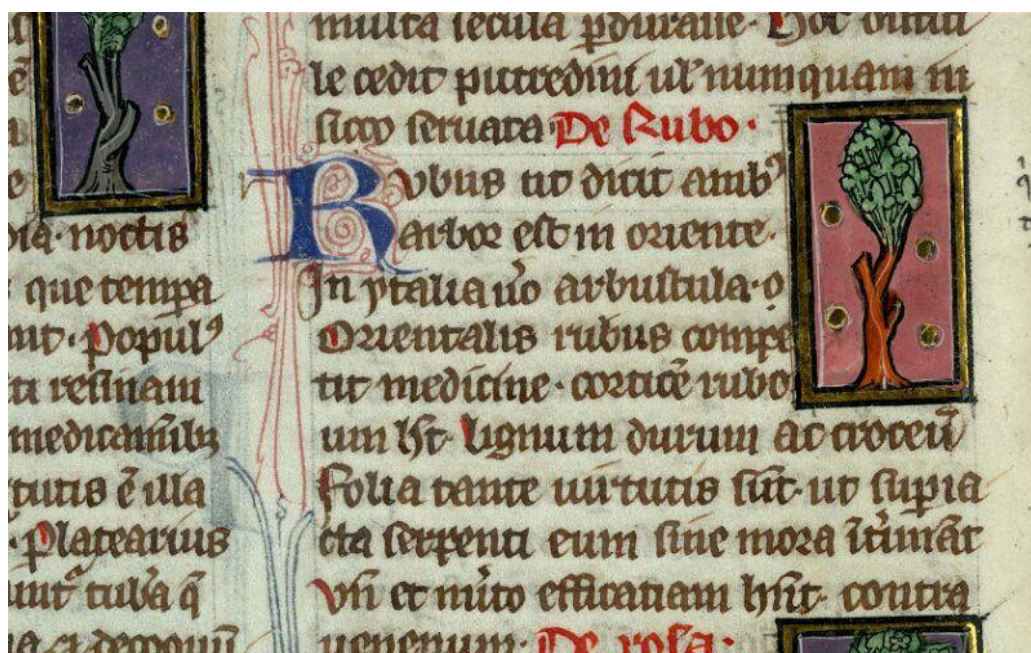 noctis
que tempa
nt · Popul᷒
ti resinam
medicaminibꝫ
tutis ē illa
· Platearius
unt tuba q̄
multa secula ꝑdurasse · Hoc
le cedit putredini ul' numquam in
sicco seruata · De Rubo ·
Rubus ut dicit amb᷒
arbor est in oriente ·
In ytalia uo arbustula · o
Orientalis rubus compe
tit medicine · corticē rubo
um ht · lignum durum ac croceū
Folia tante uirtutis sūt · ut supia
cta serpenti eum sine mora
Vn et efficatiam hnt · contra
uenenum · De rosa ·